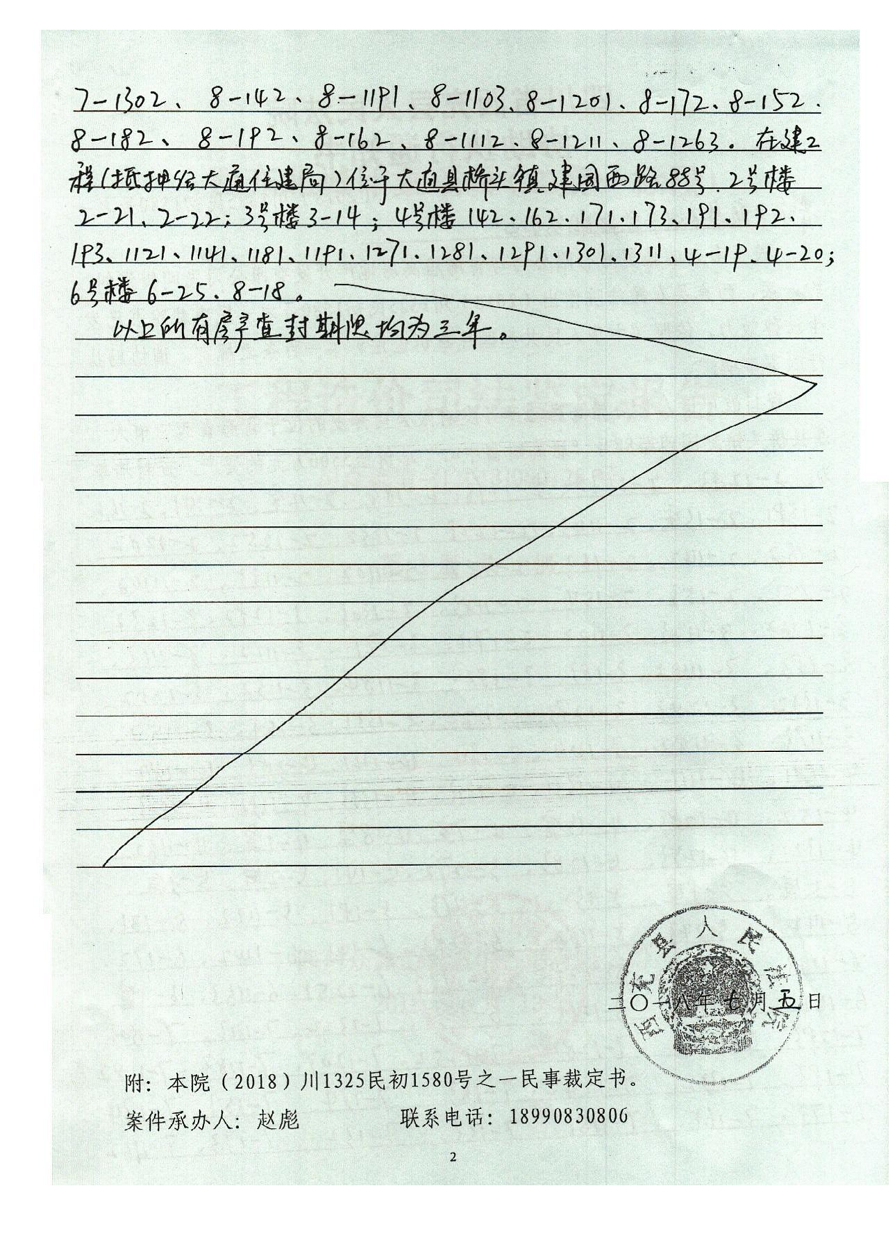 7-1302、8-142、8-1191、8-1103、8-1201、8-172、8-152、
8-182、8-192、8-162、8-1112、8-1211、8-1263。在建工
程(抵押给大通住建局)位于大通县桥头镇建国西路88号.2号楼
2-21、2-22；3号楼3-14；4号楼142、162、171、173、191、192、
193、1121、1141、1181、1191、1271、1281、1291、1301、1311、4-19、4-20；
6号楼6-25、8-18。
以上所有房产查封期限均为三年。
西充县人民法院
二〇一八年七月五日
附：本院（2018）川1325民初1580号之一民事裁定书。
案件承办人：赵彪 联系电话：18990830806
2